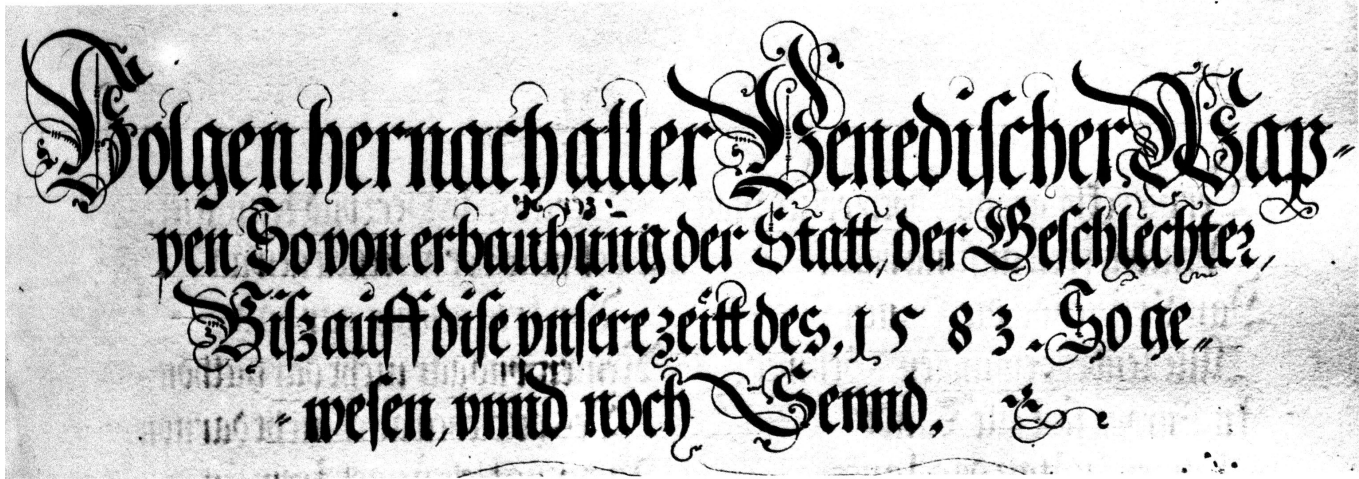 Folgen hernach aller Venedischer Wap-
pen, So von erbauhung der Statt, der Geschlechter,
Biß auff dise vnsere zeitt des, 1583. So ge-
wesen, vnnd noch Sennd.